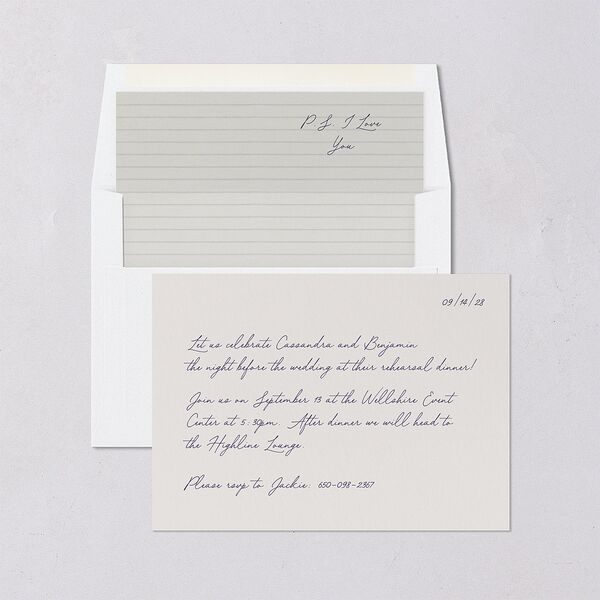 P.S. I Love
You
09/14/28
Let us celebrate Cassandra and Benjamin
the night before the wedding at their rehearsal dinner!
Join us on September 13 at the Wellshire Event
Center at 5:30pm. After dinner we will head to
the Highline Lounge.
Please rsvp to Jackie: 650-098-2367